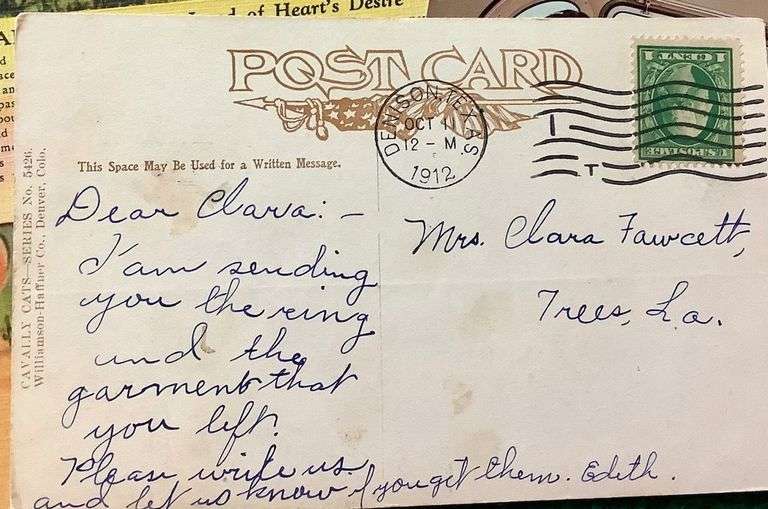 Land of Heart's Desire
POST CARD
DENISON, TEXAS
OCT 11
12 - M.
1912
I
T
1 CENT 1
U.S. POSTAGE
This Space May Be Used for a Written Message.
CAVALLY CATS—SERIES No. 5426.
Williamson-Haffner Co., Denver, Colo.
Dear Clara: -
I am sending
you the ring
and the
garment that
you left.
Please write us
and let us know if you get them. Edith.
Mrs. Clara Fawcett,
Trees, La.